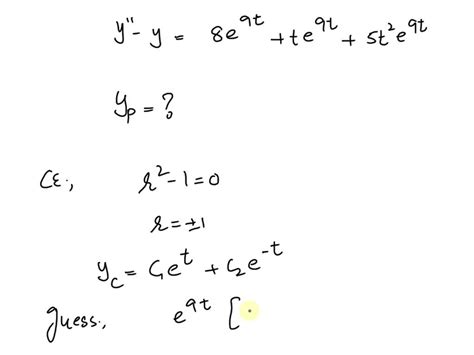 y'' - y = 8e^{9t} + te^{9t} + 5t^2e^{9t}
y_p = ?
CE:, r^2 - 1 = 0
r = ±1
y_c = c_1e^t + c_2e^{-t}
guess:, e^{9t} [